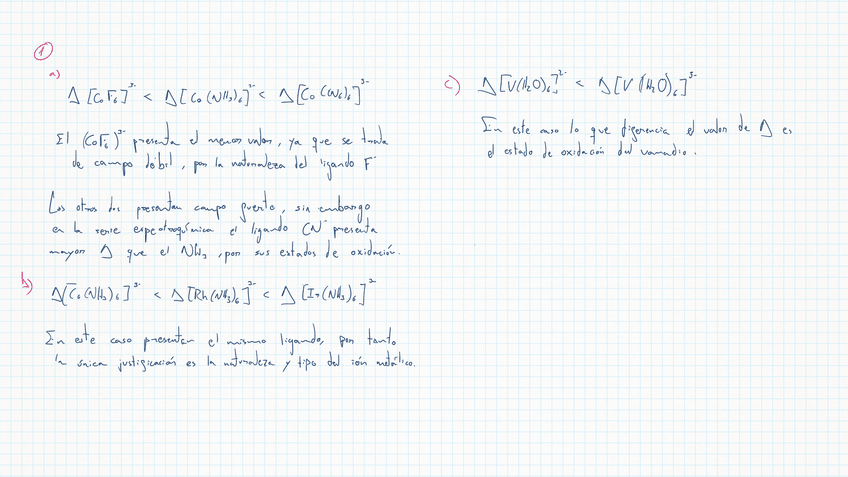 1
a)
Δ [CoF₆]³⁻ < Δ [Co(NH₃)₆]³⁻ < Δ [Co(CN₆)₆]³⁻
El (CoF₆)³⁻ presenta el menor valor, ya que se trata
de campo débil, por la naturaleza del ligando F⁻
Los otros dos presentan campo fuerte, sin embargo
en la serie espectroquímica el ligando CN⁻ presenta
mayor Δ que el NH₃, por sus estados de oxidación.
b)
Δ[Co(NH₃)₆]³⁻ < Δ[Rh(NH₃)₆]³⁻ < Δ [Ir(NH₃)₆]³⁻
En este caso presentan el mismo ligando, por tanto
la única justificación es la naturaleza y tipo del ión metálico.
c) Δ[V(H₂O)₆]²⁻ < Δ[V(H₂O)₆]³⁻
En este caso lo que diferencia el valor de Δ es
el estado de oxidación del vanadio.